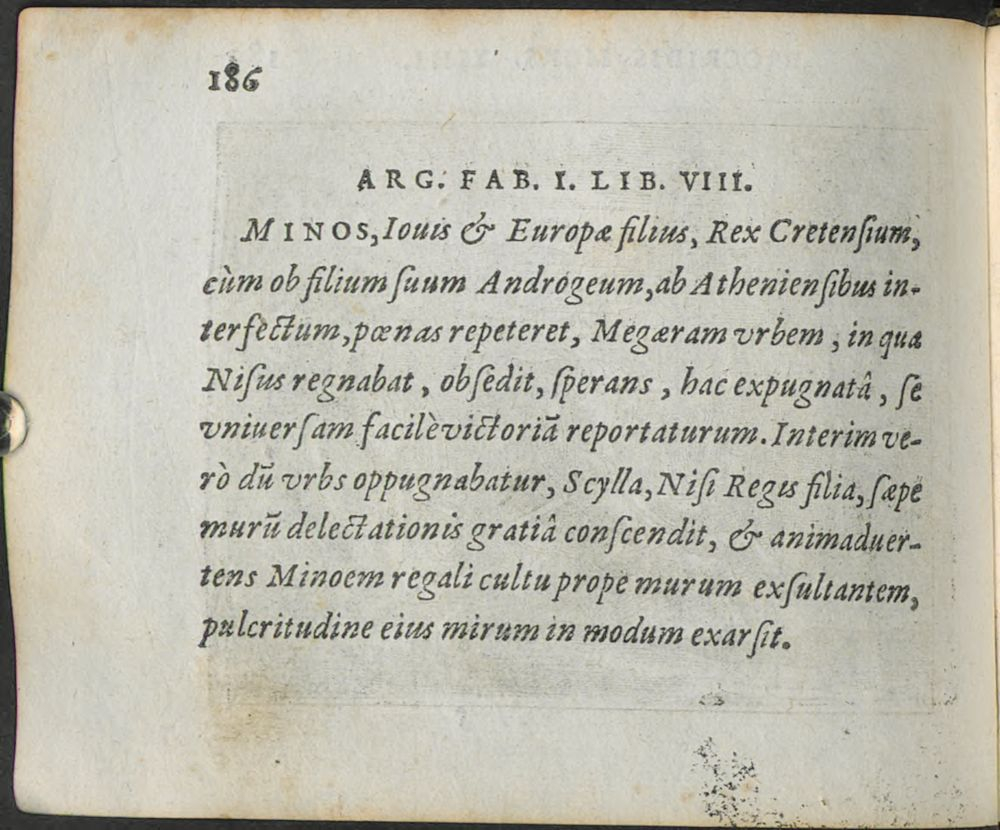 186
ARG. FAB. I. LIB. VIII.
MINOS, Iouis & Europæ filius, Rex Cretenſium,
cùm ob filium ſuum Androgeum, ab Athenienſibus in-
terfectum, pœnas repeteret, Megæram vrbem, in qua
Niſus regnabat, obſedit, ſperans, hac expugnatâ, ſe
vniuerſam facilè victoriā reportaturum. Interim ve-
rò dū vrbs oppugnabatur, Scylla, Niſi Regis filia, ſæpe
murū delectationis gratiâ conſcendit, & animaduer-
tens Minoem regali cultu prope murum exſultantem,
pulcritudine eius mirum in modum exarſit.